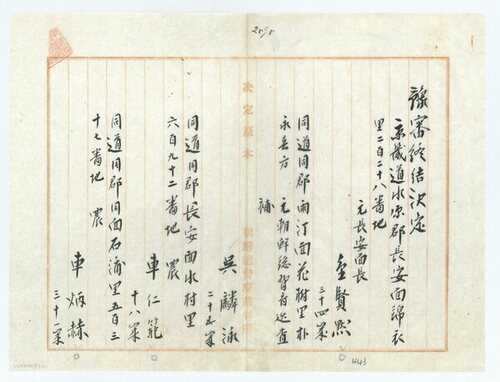 豫審終結決定
京畿道水原郡長安面錦衣
里二百二十八番地
元長安面長
金賢黙
三十四歲
同道同郡雨汀面花樹里朴
永来方 元朝鮮総督府巡査
補
吳麟泳
二十五歲
同道同郡長安面水村里
六百九十二番地 農
車仁範
十八歲
同道同郡同面石浦里五百三
十七番地 農
車炳赫
三十一歲
決定原本
2515
443